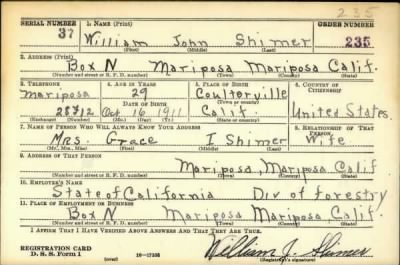 235
SERIAL NUMBER 1. NAME (Print) ORDER NUMBER
37 William John Shimer 235
(First) (Middle) (Last)
2. ADDRESS (Print)
Box N Mariposa Mariposa Calif.
(Number and street or R. F. D. number) (Town) (County) (State)
3. TELEPHONE 4. AGE IN YEARS 5. PLACE OF BIRTH 6. COUNTRY OF CITIZENSHIP
Mariposa 29 Coulterville
DATE OF BIRTH (Town or county) United States
Oct 16 1911 Calif.
(Exchange) (Number) (Mo.) (Day) (Yr.) (State or country)
7. NAME OF PERSON WHO WILL ALWAYS KNOW YOUR ADDRESS 8. RELATIONSHIP OF THAT PERSON
Mrs. Grace I Shimer Wife
(Mr., Mrs., Miss) (First) (Middle) (Last)
9. ADDRESS OF THAT PERSON
Mariposa, Mariposa, Calif
(Number and street or R. F. D. number) (Town) (County) (State)
10. EMPLOYER'S NAME
State of California Div of forestry
11. PLACE OF EMPLOYMENT OR BUSINESS
Box N Mariposa Mariposa Calif.
(Number and street or R. F. D. number) (Town) (County) (State)
I AFFIRM THAT I HAVE VERIFIED ABOVE ANSWERS AND THAT THEY ARE TRUE.
REGISTRATION CARD
D. S. S. Form 1 (over) William J. Shimer
(Registrant's signature)